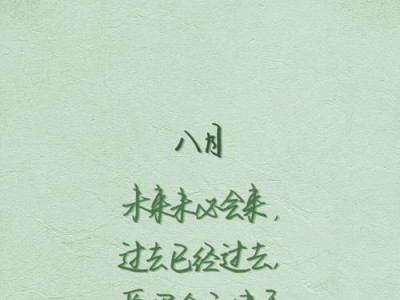 八月
未来未必会来，
过去已经过去，